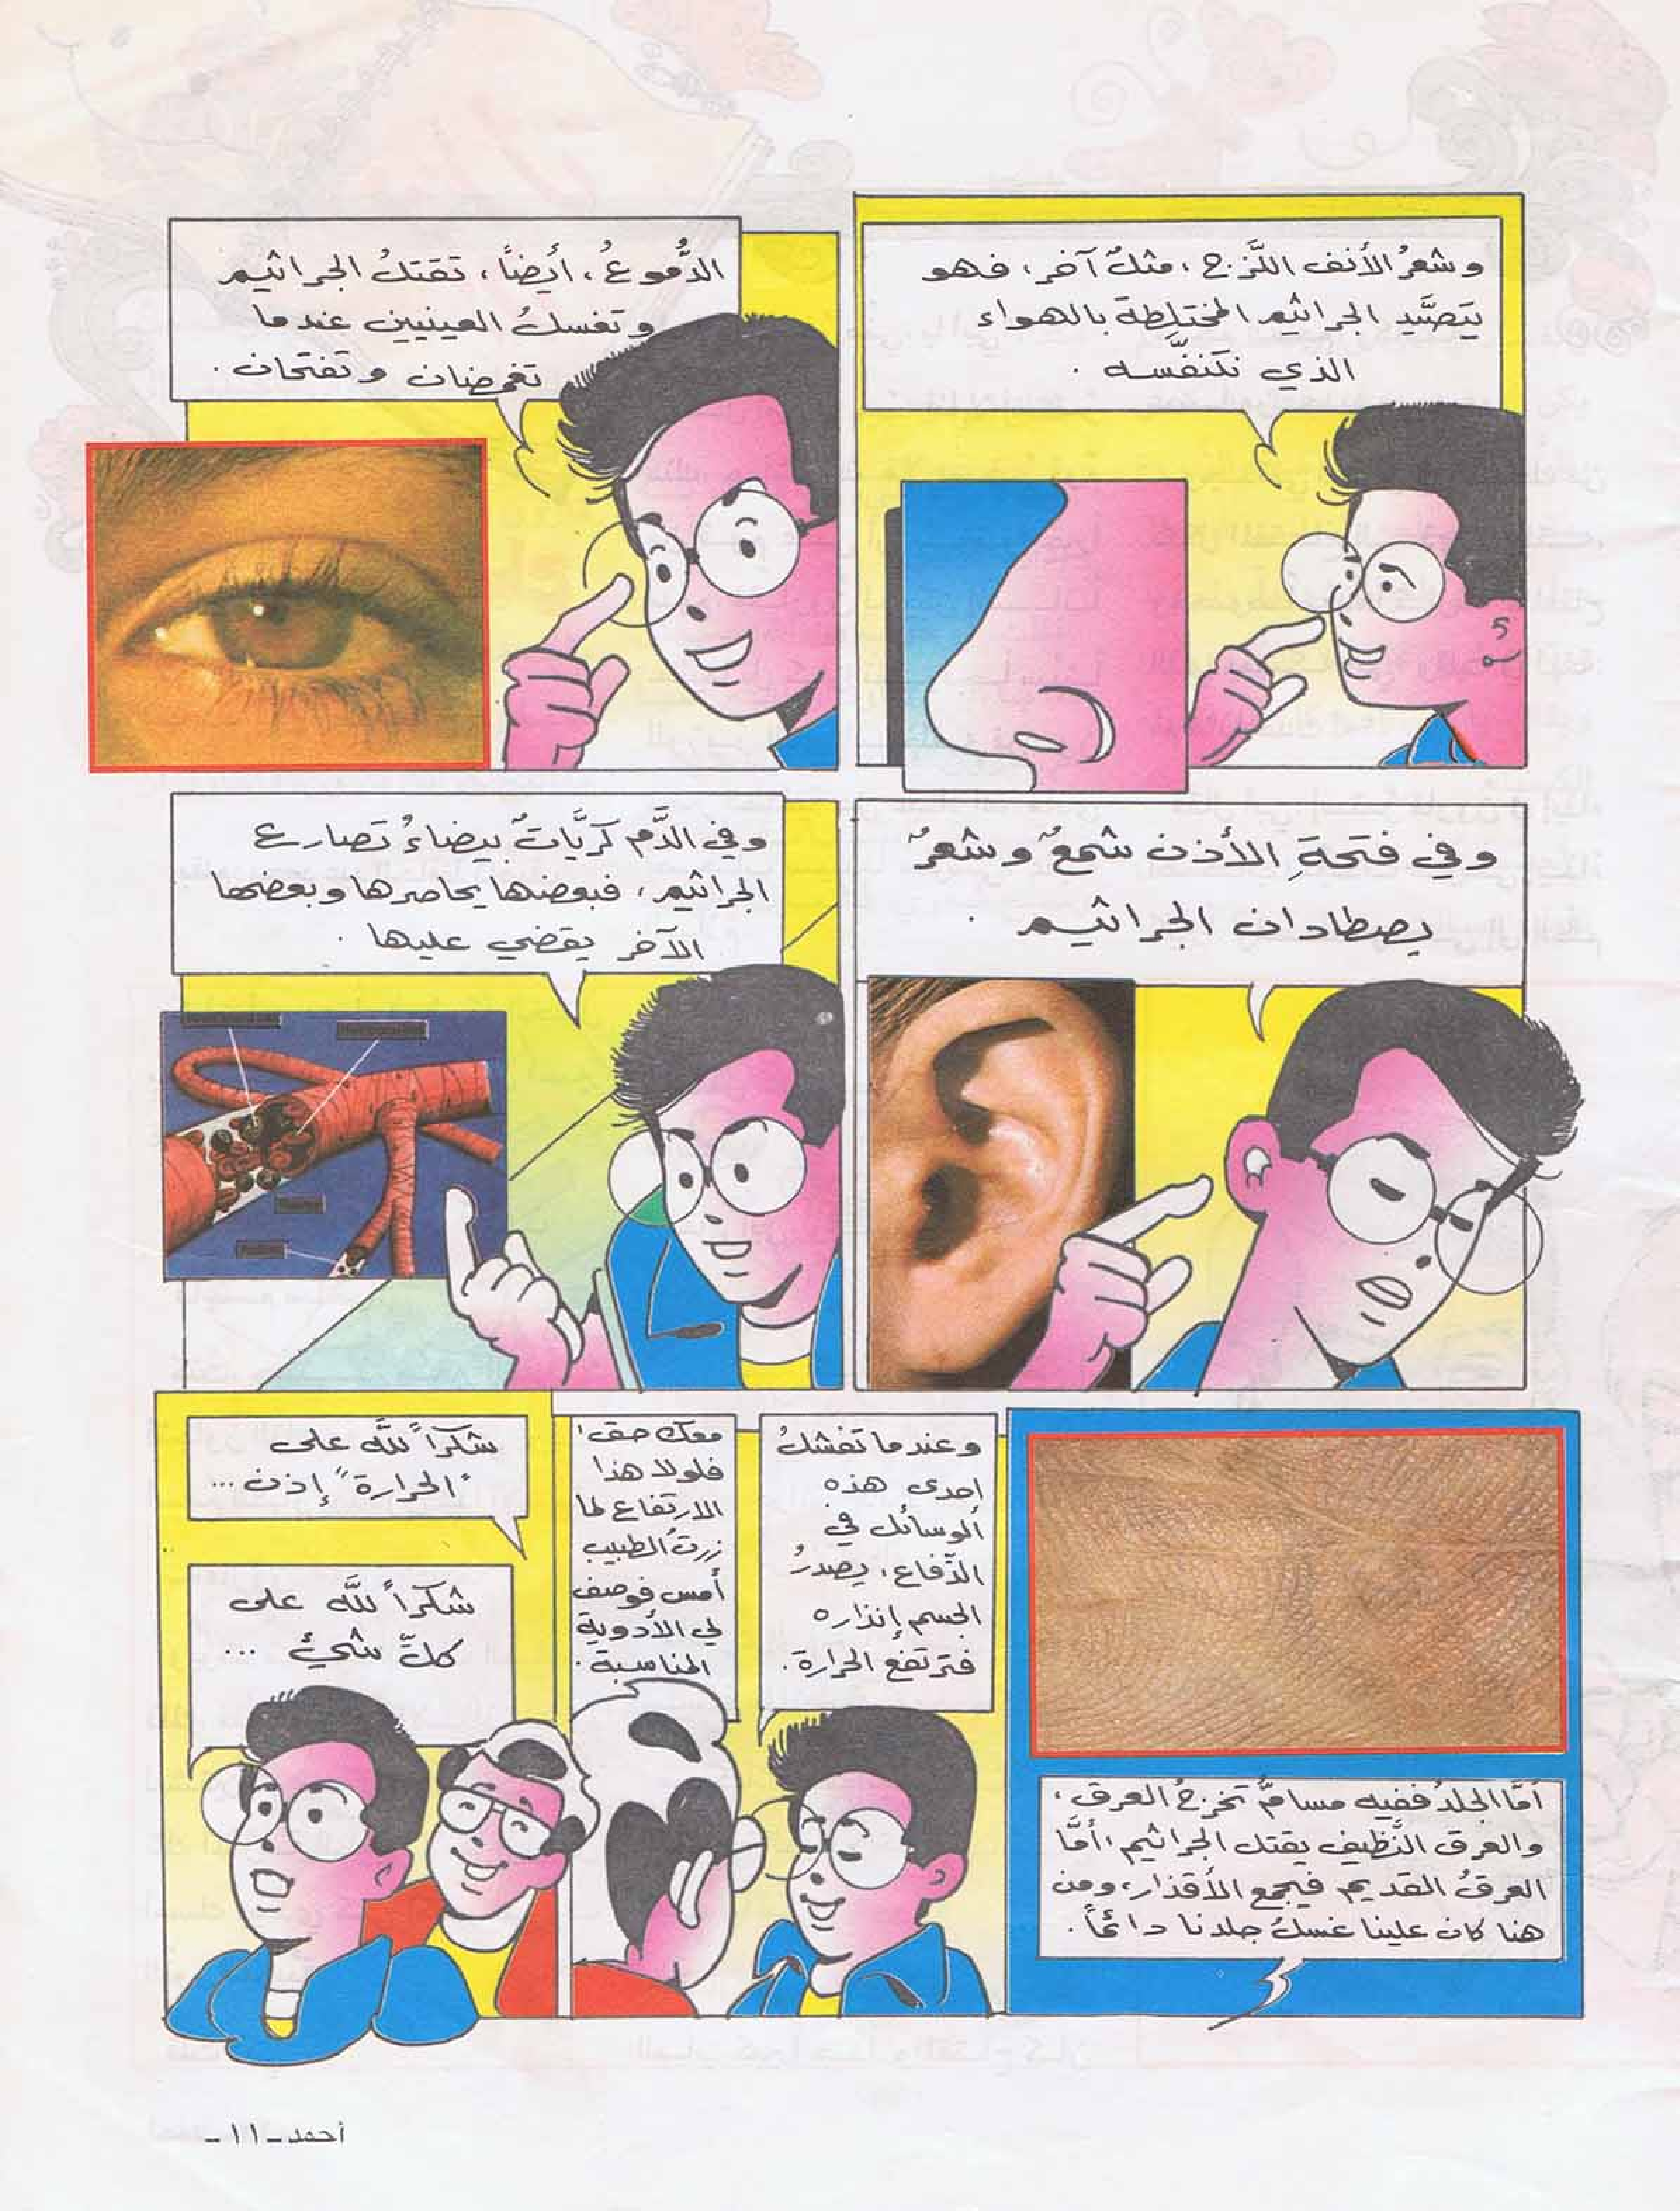 وشعرُ الأنف اللَّزج، مثلٌ آخر، فهو
يَتصَّيد الجراثيم المختلِطة بالهواء
الذي نتنفّسه .
الدُّموعُ، أيضاً، تقتلُ الجراثيم
وتغسلُ العينيين عندما
تغمضان وتفتحان .
وفي فتحةِ الأذن شمعٌ وشعرٌ
يصطادان الجراثيم .
وفي الدَّم كريَّاتٌ بيضاءُ تصارع
الجراثيم، فبعضها يحاصرها وبعضها
الآخر يقضي عليها .
أمَّا الجلدُ ففيه مسامٌّ تخرجُ العرق،
والعرق النَّظيف يقتل الجراثيم، أمَّا
العرقُ القديم فيجمع الأقذار، ومن
هنا كان علينا غسلُ جلدنا دائماً.
وعندما تفشلُ
إحدى هذه
الوسائل في
الدّفاع، يصدرُ
الجسم إنذاره
فترتفع الحرارة.
معك حق!
فلولا هذا
الارتفاع لما
زرتُ الطبيب
أمس فوصف
لي الأدوية
المناسبة .
شكراً للَّه على
"الحرارة" إذن ...
شكراً للَّه على
كلِّ شيْء ...
أحمد - ١١ -